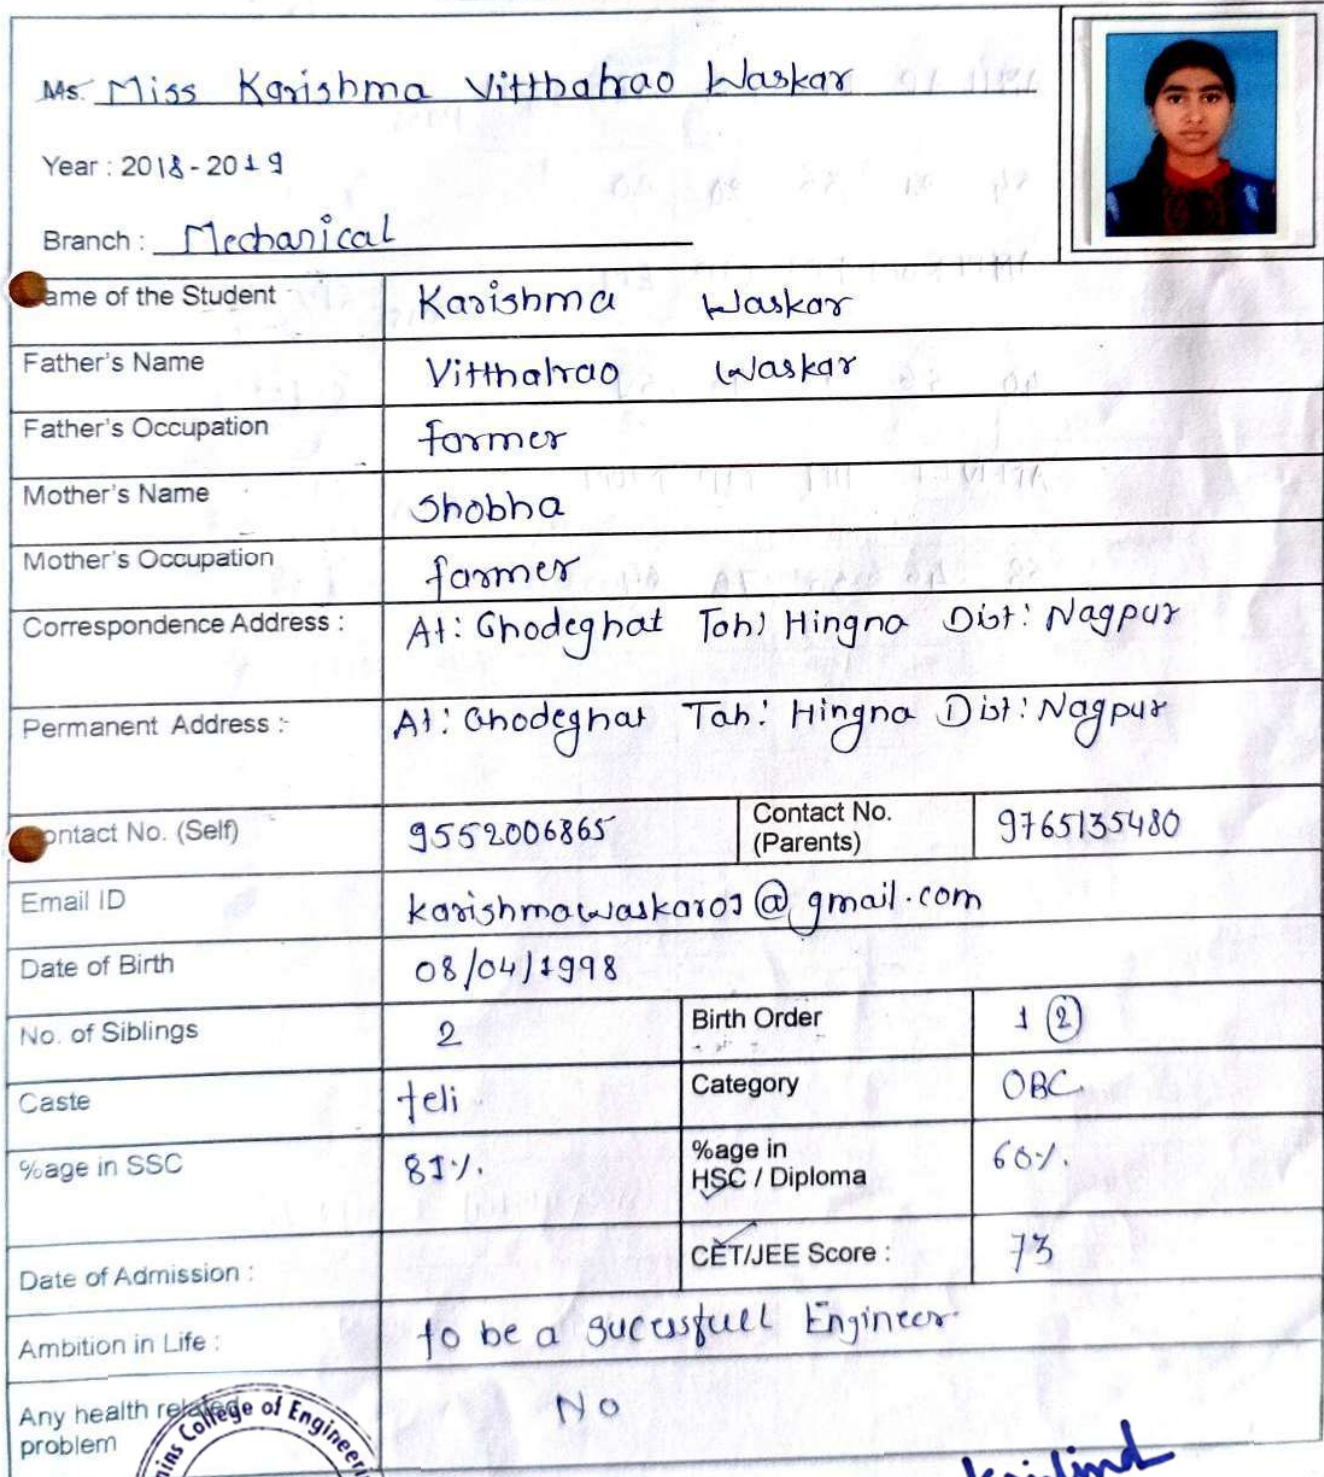 Ms. Miss Karishma Vitthalrao Waskar
Year : 2018 - 2019
Branch : Mechanical
ame of the Student Karishma Waskar
Father's Name Vitthalrao Waskar
Father's Occupation farmer
Mother's Name Shobha
Mother's Occupation farmer
Correspondence Address : At: Ghodeghat Tah: Hingna Dist: Nagpur
Permanent Address :- At: Ghodeghat Tah: Hingna Dist: Nagpur
ontact No. (Self) 9552006865 Contact No. (Parents) 9765135480
Email ID karishmawaskar01@gmail.com
Date of Birth 08/04/1998
No. of Siblings 2 Birth Order 1 (2)
Caste teli Category OBC
%age in SSC 81%. %age in
HSC / Diploma 60%.
Date of Admission : CET/JEE Score : 73
Ambition in Life : to be a sucessfull Engineer.
Any health related
problem No
College of Engineeri